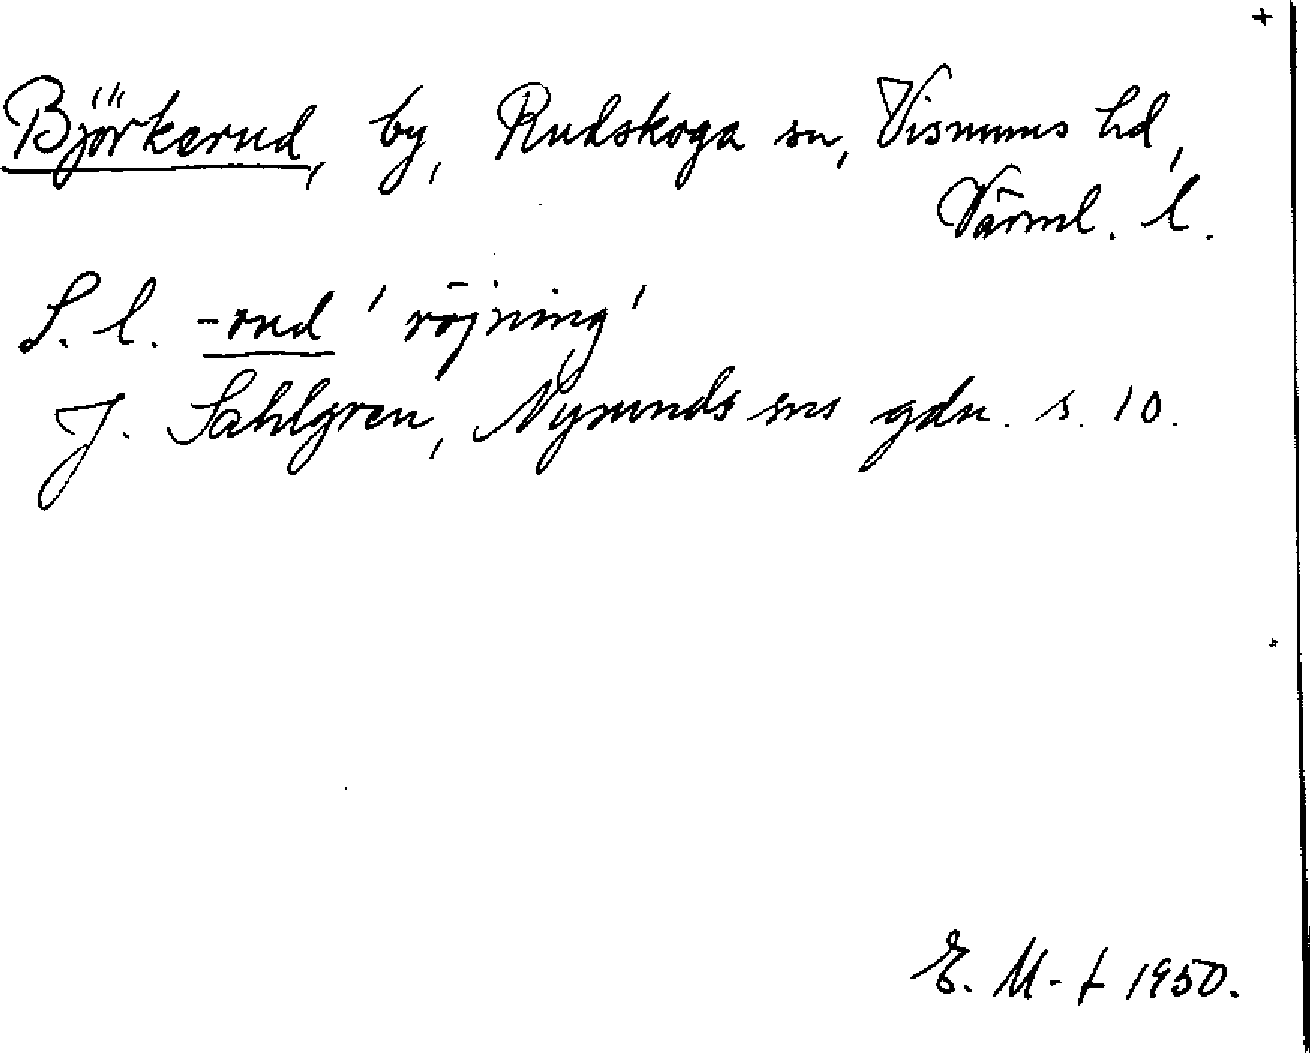 +
Björkerud, by, Rudskoga sn, Visnums hd,
Värml. l.
S. l. -rud 'röjning'
J. Sahlgren, Nysunds sns gdn. s. 10.
E. M-t 1950.